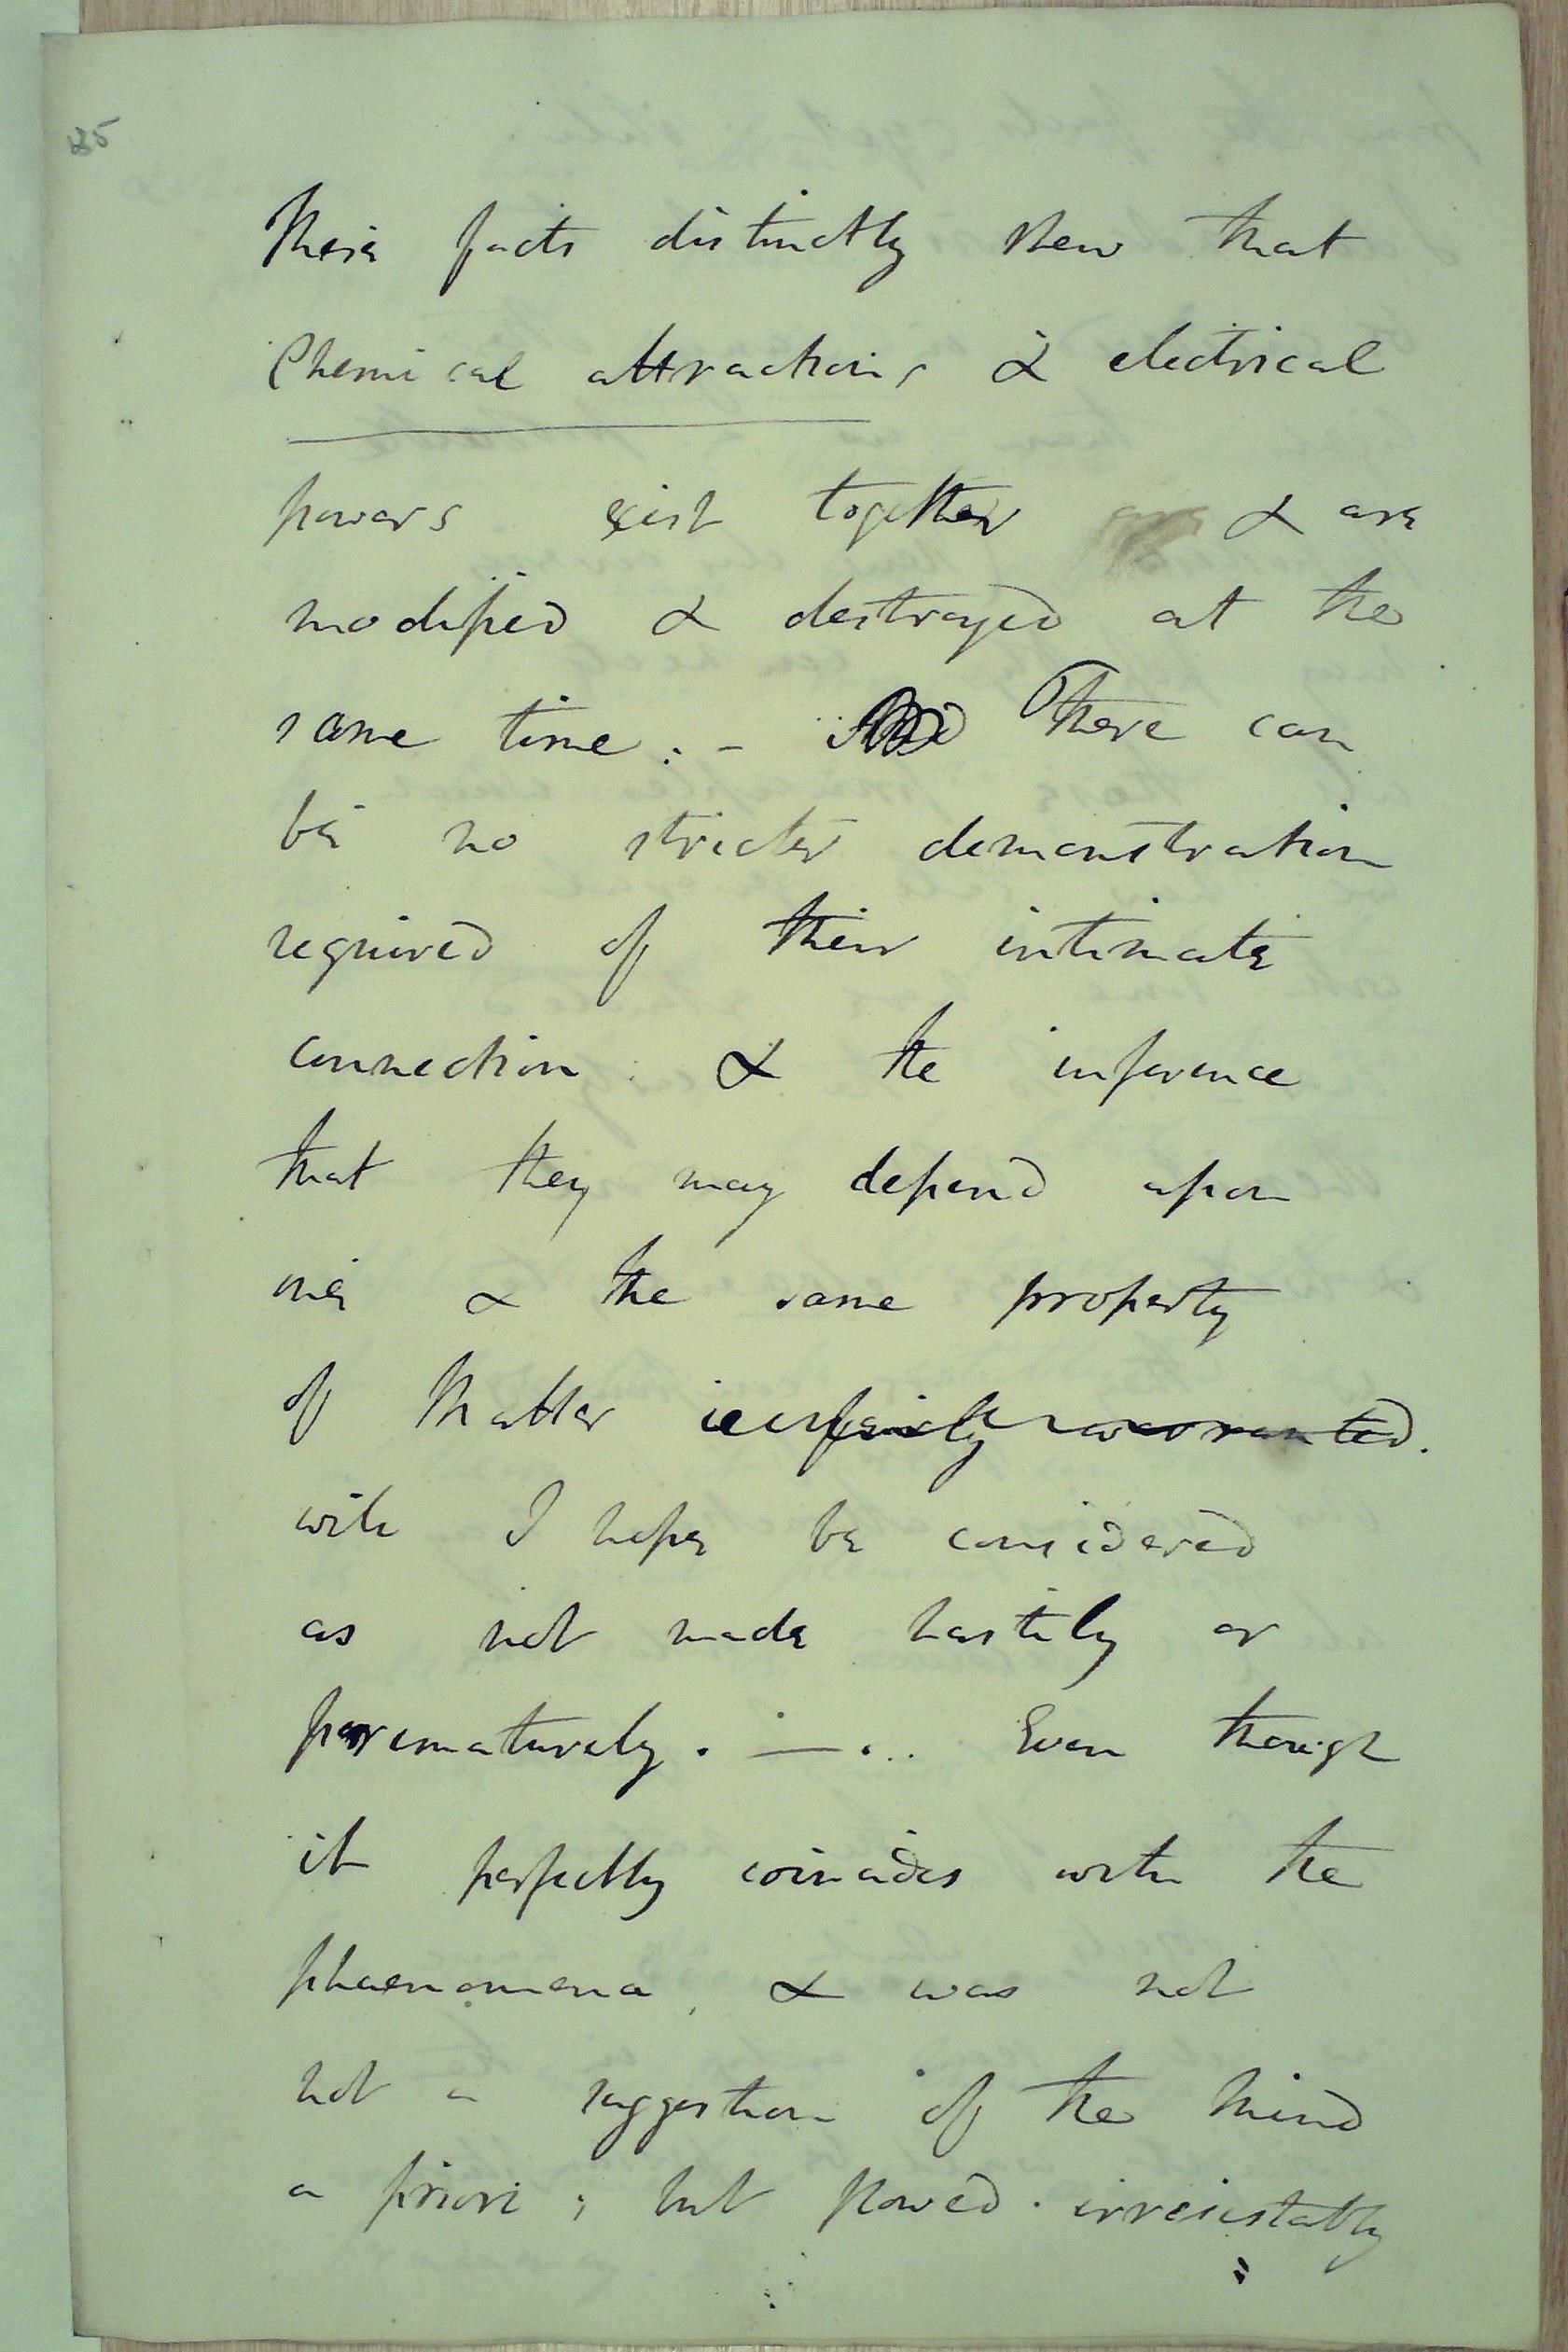 125
These facts distinctly shew that
Chemical attractions & electrical
powers exist together & are
modified & destroyed at the
same time. - There can
be no stricter demonstration
required of their intimate
connection & the inference
that they may depend upon
one & the same property
of Matter is fairly warranted.
will I hope be considered
as not made hastily or
prematurely. — ... Even though
it perfectly coincides with the
phaenomena, & was not
not a suggestion of the Mind
a priori; but flowed irresistably